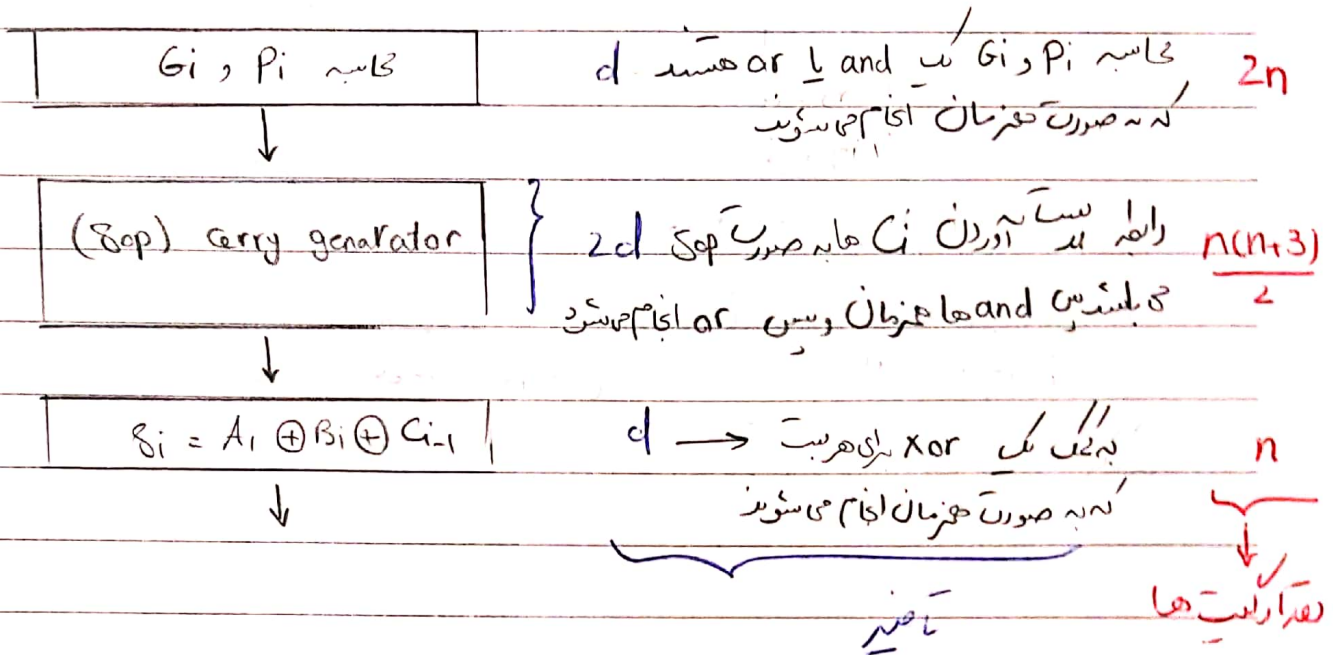 محاسبه Pi و Gi
محاسبه Pi و Gi یک and یا or هستند d 2n
که به صورت همزمان انجام می شوند
(Sop) carry genarator
2d رابطه بدست آوردن Ci ها به صورت Sop n(n+3)/2
می باشد پس and ها همزمان و سپس or انجام می شود
Si = Ai ⊕ Bi ⊕ Ci-1
به کمک یک xor برای هر بیت → d n
که به صورت همزمان انجام می شوند
تاخیر
تعداد گیت ها